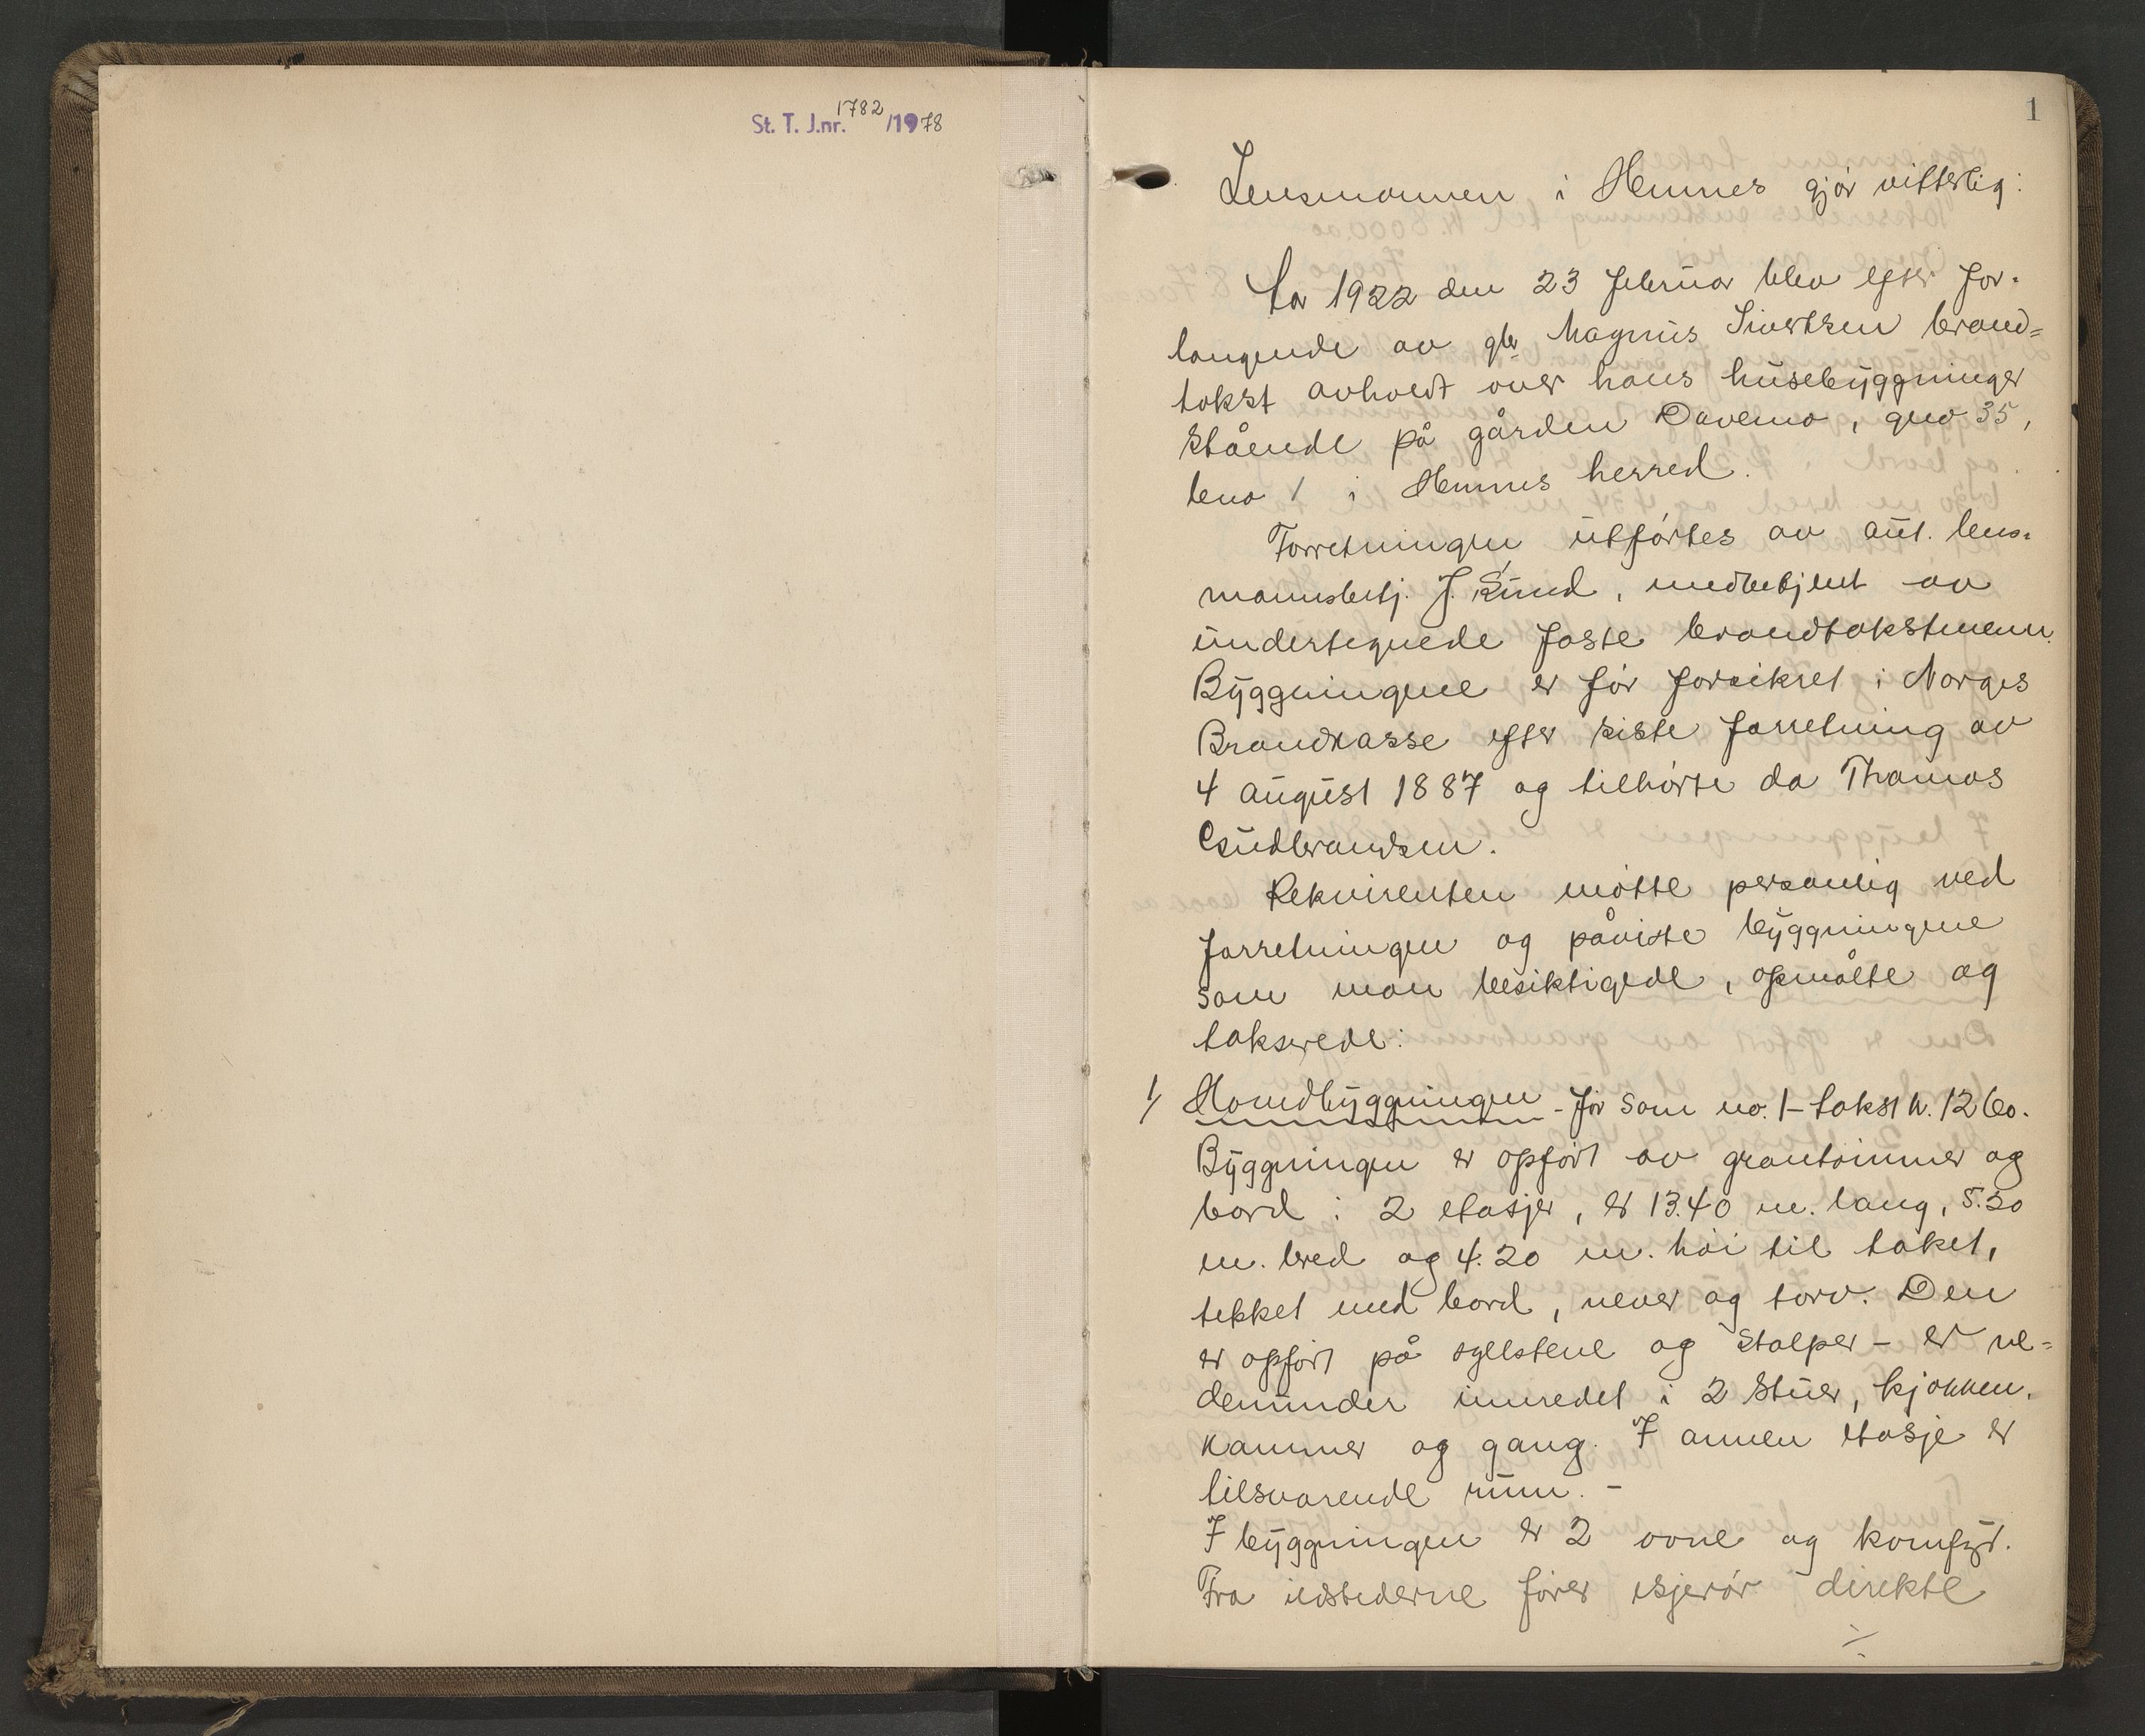 St. T. J.nr. 1782/1978
1
Lensmannen i Hemnes gjør vitterlig:
År 1922 den 23 februar blev efter for-
langende av gbr Magnus Sivertsen brand=
takst avholdt over hans husebyggninger
stående på gården Davemo, gno 35,
bno 1 i Hemnes herred.
Forretningen utførtes av aut. lens-
mannsbetj. J. Sund, medbetjent av
undertegnede faste brandtakstmenn.
Byggningene er før forsikret i Norges
Brandkasse efter siste forretning av
4 august 1887 og tilhørte da Thomas
Gudbrandsen.
Rekvirenten møtte personlig ved
forretningen og påviste byggningene
som man besiktigede, opmålte og
takserede:
1/ Hovedbyggningen - før som no. 1 - takst kr. 1260.
Byggningen er opført av grantømmer og
bord i 2 etasjer, er 13.40 m. lang, 5.20
m. bred og 4.20 m. høi til taket,
tekket med bord, never og torv. Den
er opført på syllstene og stolper - er ne=
denunder innredet i 2 stuer, kjøkken,
kammer og gang. I annen etasje er
tilsvarende rum. -
I byggningen er 2 ovne og komfyr.
Fra ildstederne fører esjerør direkte